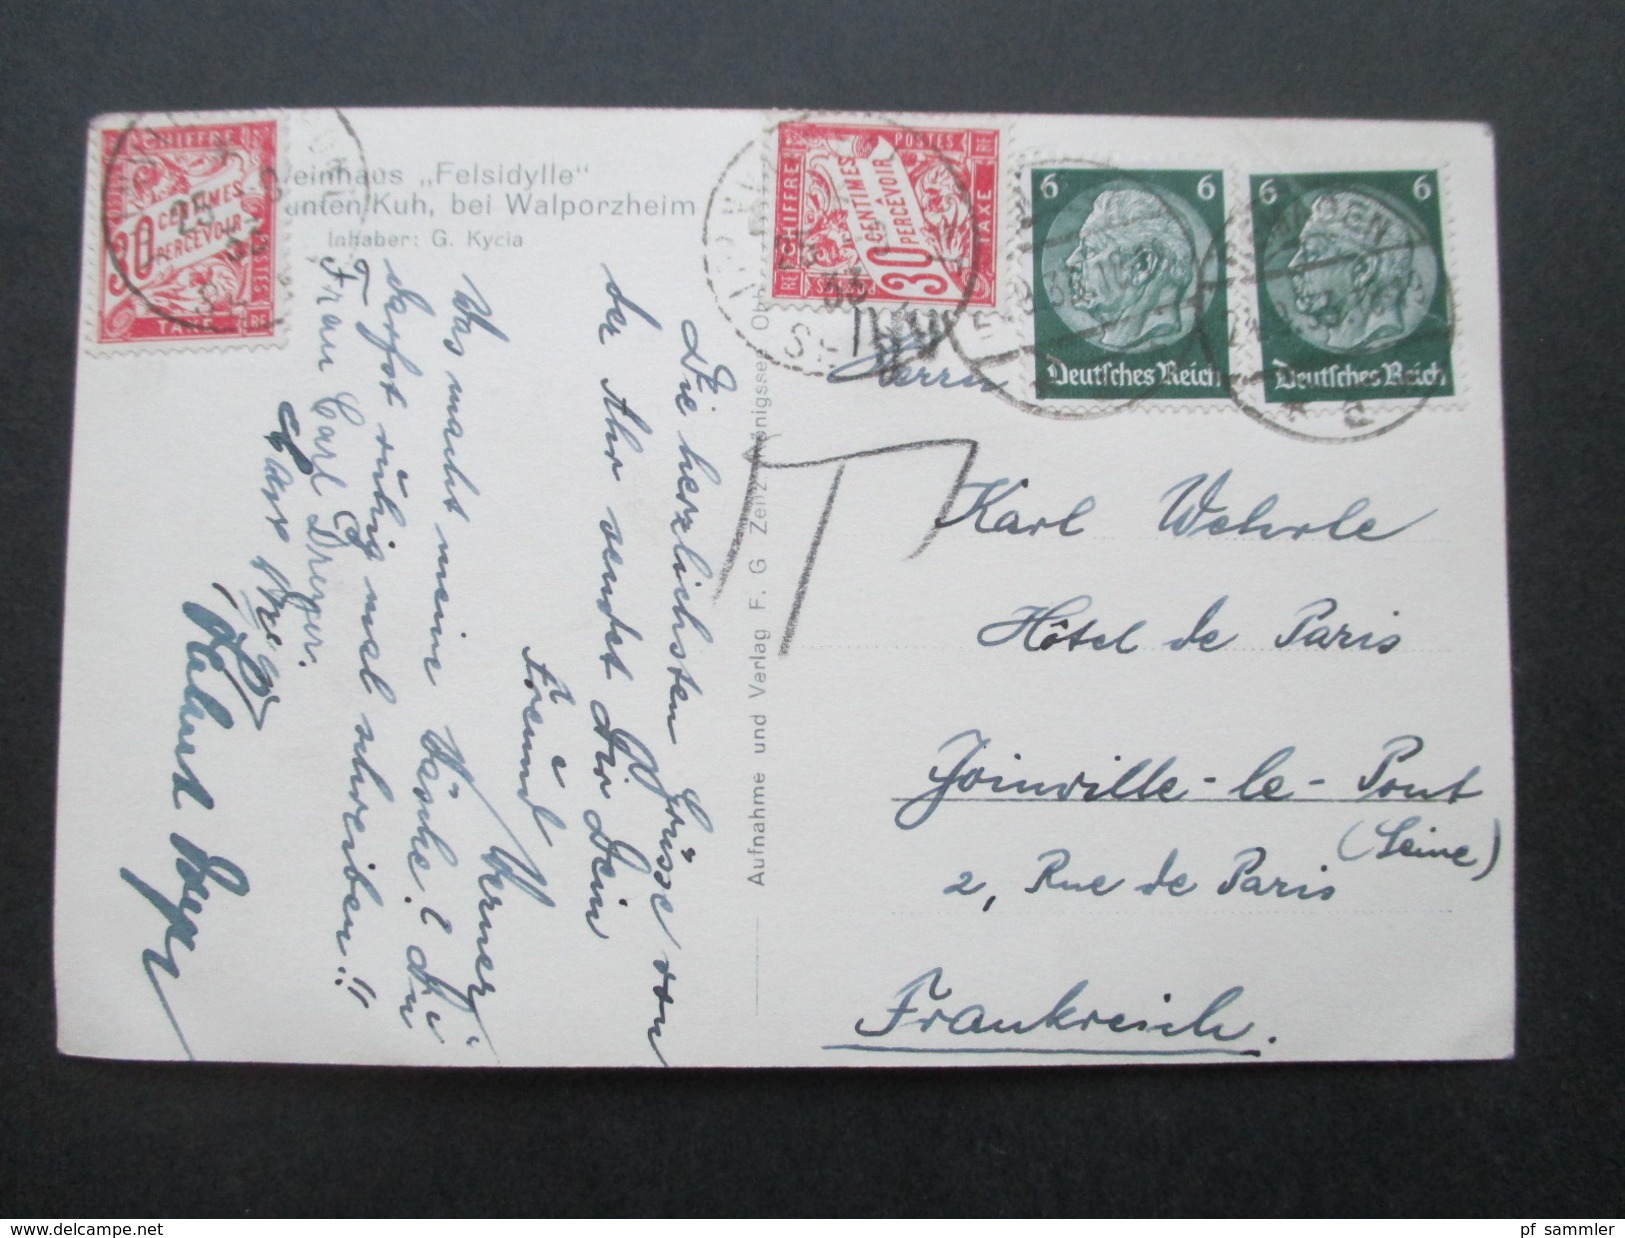 Weinhaus „Felsidylle“
bunten Kuh, bei Walporzheim
Inhaber: G. Kycia
Die herzlichsten Grüsse von
der Ahr sendet Dir Dein
Freund
Werner
Was macht meine Wäsche? Du
darfst ruhig mal schreiben!!
Frau Carl Dreyer.
Aufnahme und Verlag F. G Zenz, Königssee Obb
CHIFFRE
30 CENTIMES
PERCEVOIR
TAXE
RF
POSTES
CHIFFRE
30 CENTIMES À
PERCEVOIR
TAXE
RF
POSTES
6 6
Deutsches Reich
6 6
Deutsches Reich
T
Herrn
Karl Wehrle
Hôtel de Paris
Joinville-le-Pont
(Seine)
2, Rue de Paris
Frankreich.
www.delcampe.net
pf_sammler